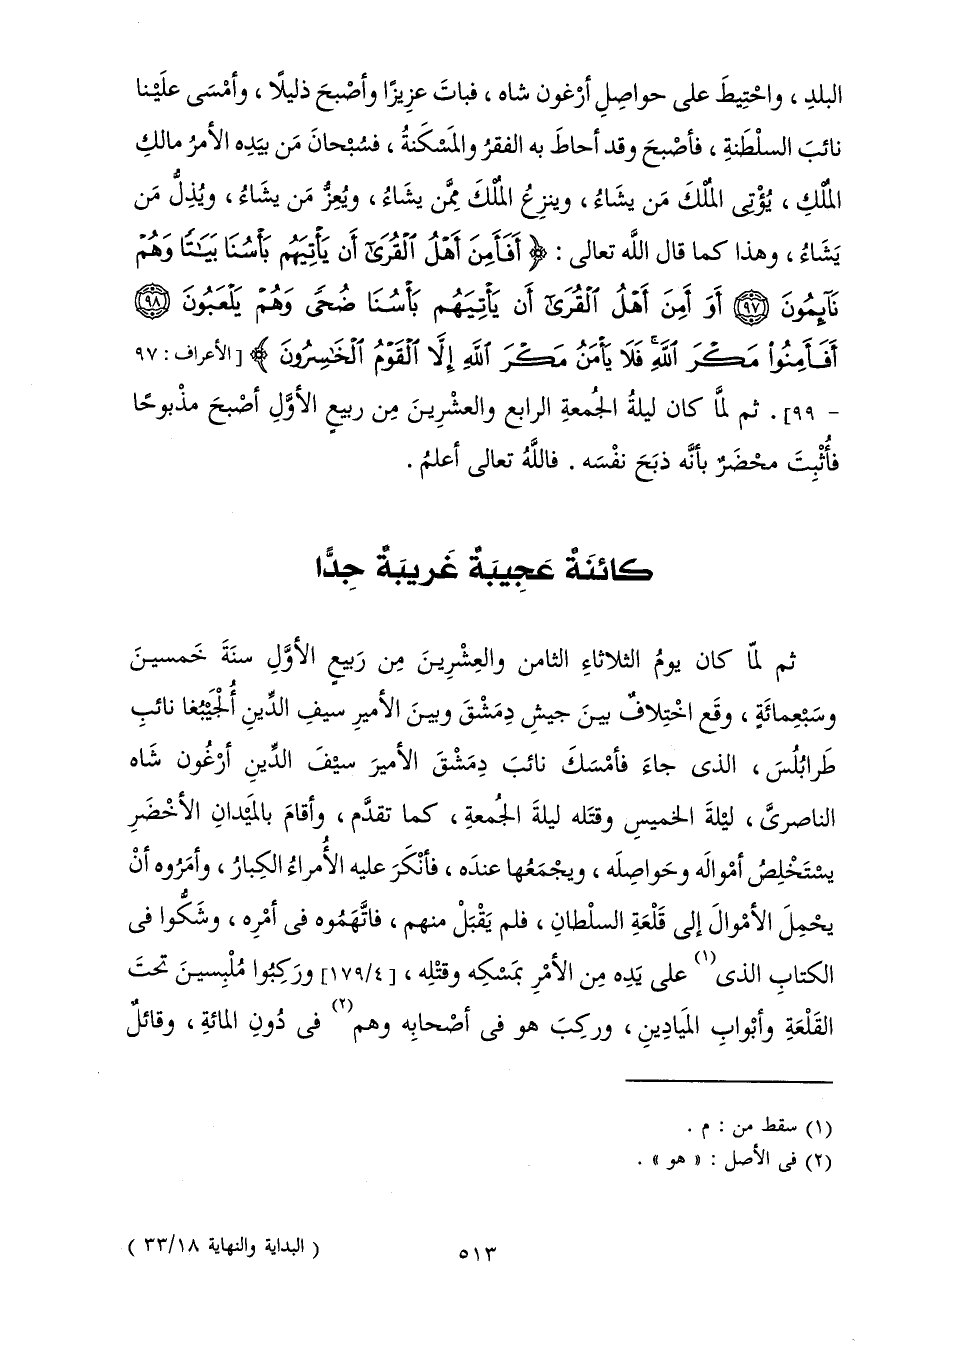 البلدِ ، واحْتِيطَ على حواصِلِ أرْغون شاه ، فباتَ عزيزًا وأصْبحَ ذليلًا ، وأمْسَى علَيْنا
نائبَ السلْطَنةِ ، فأصْبحَ وقد أحاطَ به الفقرُ والمَسْكنةُ ، فسُبْحانَ مَن بيَدِه الأمرُ مالكِ
المُلْكِ ، يُؤْتِى المُلْكَ مَن يشَاءُ ، وينزِعُ المُلْكَ مِمَّن يشاءُ ، ويُعِزُّ مَن يشاءُ ، ويُذِلُّ مَن
يَشَاءُ ، وهذا كما قال اللَّه تعالى : ﴿ أَفَأَمِنَ أَهْلُ ٱلْقُرَىٰٓ أَن يَأْتِيَهُم بَأْسُنَا بَيَٰتًا وَهُمْ
نَآئِمُونَ ٩٧ أَوَ أَمِنَ أَهْلُ ٱلْقُرَىٰٓ أَن يَأْتِيَهُم بَأْسُنَا ضُحًى وَهُمْ يَلْعَبُونَ ٩٨
أَفَأَمِنُوا۟ مَكْرَ ٱللَّهِ ۚ فَلَا يَأْمَنُ مَكْرَ ٱللَّهِ إِلَّا ٱلْقَوْمُ ٱلْخَٰسِرُونَ ﴾ [ الأعراف : ٩٧
- ٩٩] . ثم لمَّا كان ليلةُ الجُمعةِ الرابع والعشْرِينَ مِن ربيعٍ الأوَّلِ أصْبحَ مذْبوحًا
فأُثْبِتَ محْضَرٌ بأنَّه ذبَحَ نفْسَه . فاللَّهُ تعالى أعلمُ .
كائنَةٌ عَجِيبَةٌ غَريبَةٌ جِدًّا
ثم لمّا كان يومُ الثلاثاءِ الثامن والعِشْرِينَ مِن رَبيعٍ الأوَّلِ سنَةَ خَمسينَ
وسَبْعِمائَةٍ ، وقَع اخْتِلافٌ بينَ جيشِ دِمَشْقَ وبينَ الأميرِ سيفِ الدِّينِ أُلْجَيْبُغا نائبِ
طَرابُلُسَ ، الذى جاءَ فأمْسَكَ نائبَ دِمَشْقَ الأميرَ سيْفَ الدِّينِ أرْغُون شَاه
الناصرىَّ ، ليْلةَ الخميسِ وقتَله ليلةَ الجُمعةِ ، كما تقدَّم ، وأقامَ بالمَيْدانِ الأخْضَرِ
يسْتَخْلِصُ أمْوالَه وحَواصِلَه ، ويجْمَعُها عندَه ، فأنْكَرَ عليه الأُمراءُ الكِبارُ ، وأمَرُوه أنْ
يحْمِلَ الأمْوالَ إلى قَلْعَةِ السلْطانِ ، فلم يَقْبَلْ منهم ، فاتَّهَمُوه فى أمْرِه ، وشَكُّوا فى
الكتابِ الذى(١) على يَدِه مِن الأمْرِ بمَسْكِه وقتْلِه ، [١٧٩/٤] ورَكِبُوا مُلْبِسينَ تحتَ
القَلْعَةِ وأبْوابِ المَيَادِينِ ، وركِبَ هو فى أصْحابِه وهم(٢) فى دُونِ المائةِ ، وقائلٌ
(١) سقط من : م .
(٢) فى الأصل : « هو » .
٥١٣
( البداية والنهاية ٣٣/١٨ )